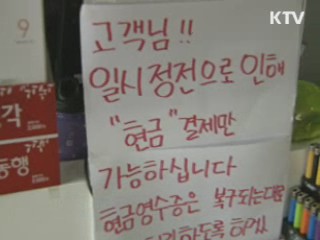 KTV
9
고객님!!
일시정전으로 인해
"현금" 결제만
가능하십니다
현금영수증은 복구되는대로
각
동행